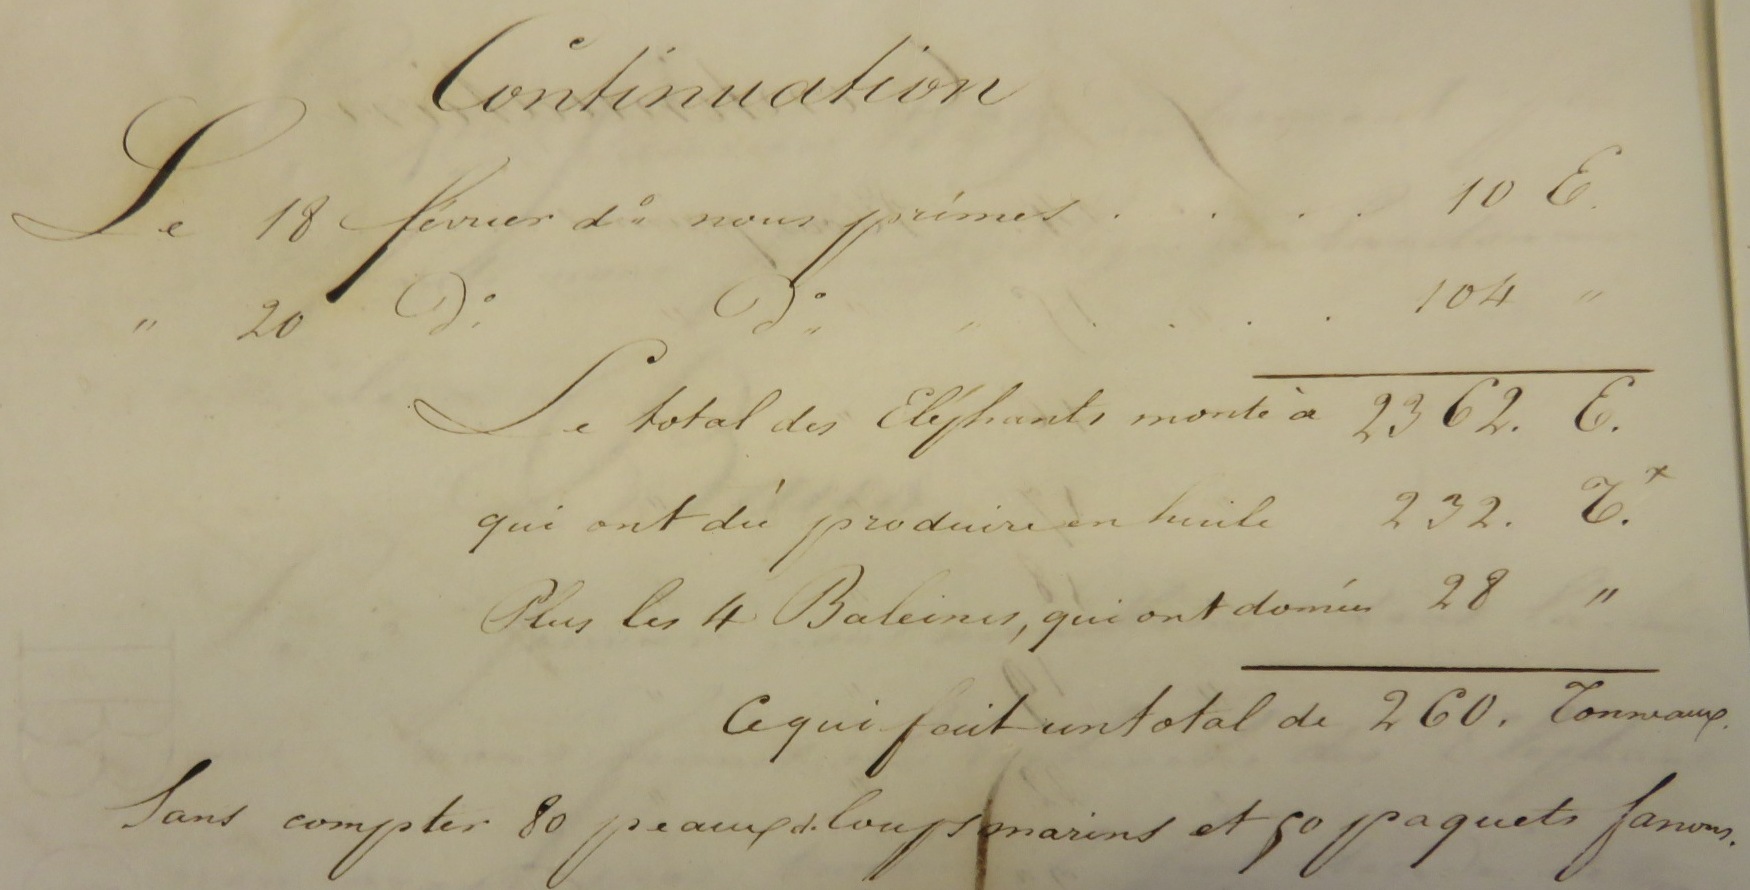 Continuation
Le 18 février d° nous prîmes . . . . 10 E.
" 20 D° D° " . . . . 104 "
Le total des Eléphants monte à 2362. E.
qui ont dû produire en huile 232. Tx
Plus les 4 Baleines, qui ont données 28 "
Ce qui fait un total de 260. Tonneaux.
Sans compter 80 peaux d. loups marins et 50 paquets fanons.